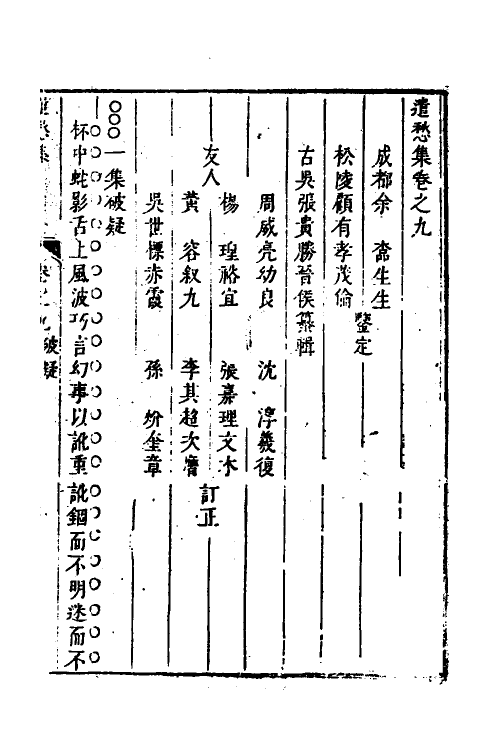 遣愁集卷之九
成都余 㴶生生
松陵顧有孝茂倫
鑒定
古吳張貴勝晉侯纂輯
友人
周威亮幼良 沈 淳羲復
楊 瑆裕宜 張嘉理文木
黃 容叙九 李其超次膺
吳世標赤霞 孫 枌奎章
訂正
○○○一集破疑
杯中蛇影舌上風波巧言幻事以訛重訛錮而不明迷而不
遣愁集 卷之九 破疑